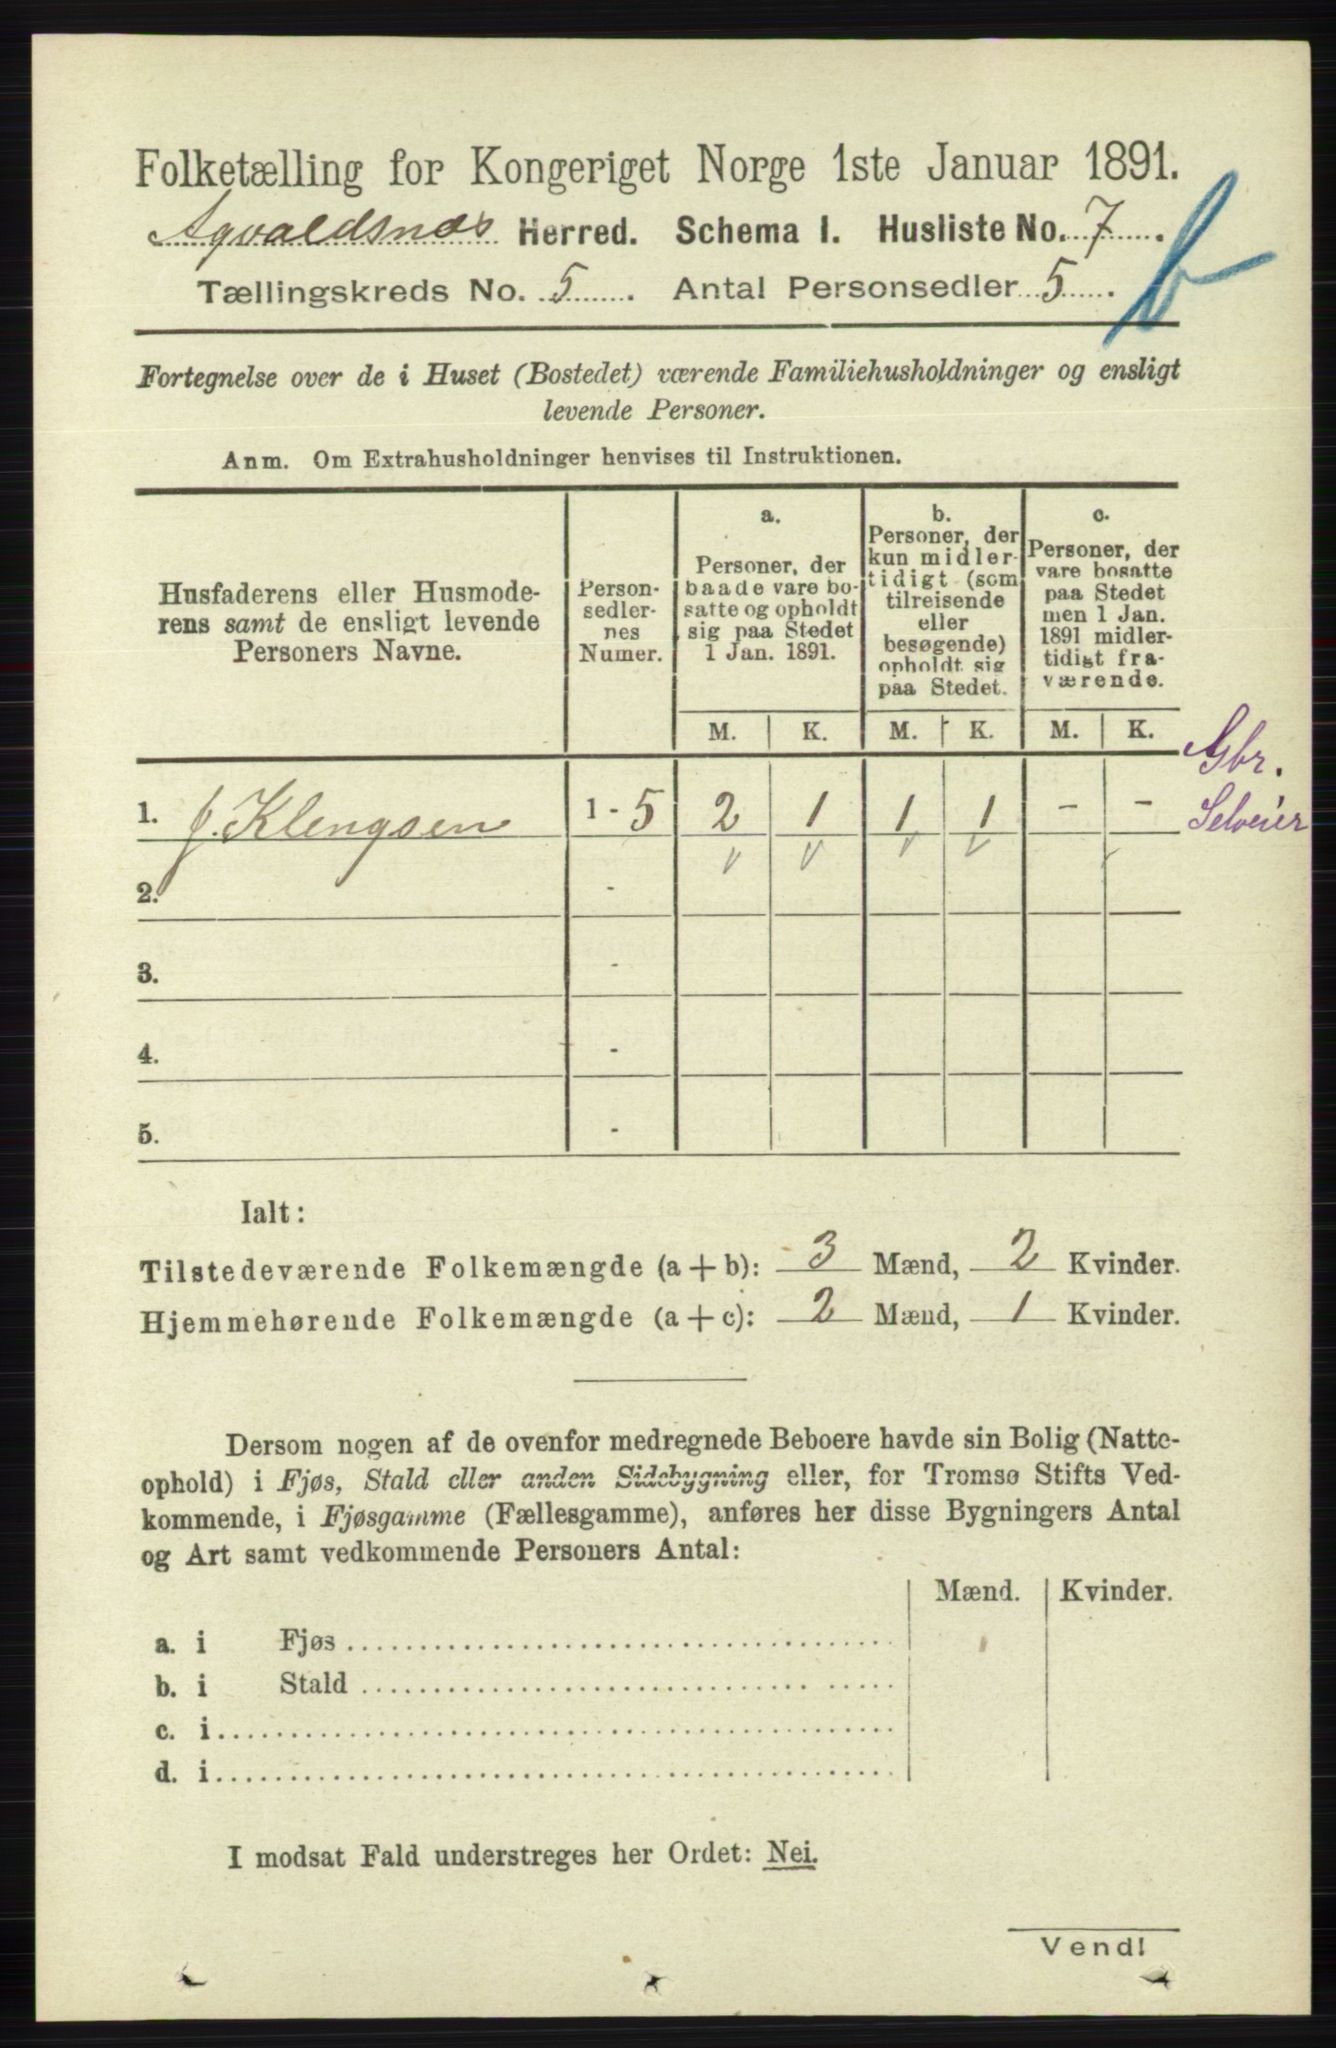 Folketælling for Kongeriget Norge 1ste Januar 1891.
Agvaldsnæs Herred. Schema I. Husliste No. 7.
Tællingskreds No. 5. Antal Personsedler 5.
b
Fortegnelse over de i Huset (Bostedet) værende Familiehusholdninger og ensligt
levende Personer.
Anm. Om Extrahusholdninger henvises til Instruktionen.
Husfaderens eller Husmode-
rens samt de ensligt levende
Personers Navne.
Person-
sedler-
nes
Numer.
a.
Personer, der
baade vare bo-
satte og opholdt
sig paa Stedet
1 Jan. 1891.
b.
Personer, der
kun midler-
tidigt (som
tilreisende
eller
besøgende)
opholdt sig
paa Stedet.
c.
Personer, der
vare bosatte
paa Stedet
men 1 Jan.
1891 midler-
tidigt fra-
værende.
M. K. M. K. M. K.
Gbr.
Selveier
1. J. Klengsen 1 - 5 2 1 1 1 - -
2. -
3. -
4. -
5. -
Ialt:
Tilstedeværende Folkemængde (a + b): 3 Mænd, 2 Kvinder.
Hjemmehørende Folkemængde (a + c): 2 Mænd, 1 Kvinder.
Dersom nogen af de ovenfor medregnede Beboere havde sin Bolig (Natte-
ophold) i Fjøs, Stald eller anden Sidebygning eller, for Tromsø Stifts Ved-
kommende, i Fjøsgamme (Fællesgamme), anføres her disse Bygningers Antal
og Art samt vedkommende Personers Antal:
Mænd. Kvinder.
a. i Fjøs
b. i Stald
c. i
d. i
I modsat Fald understreges her Ordet: Nei.
Vend!